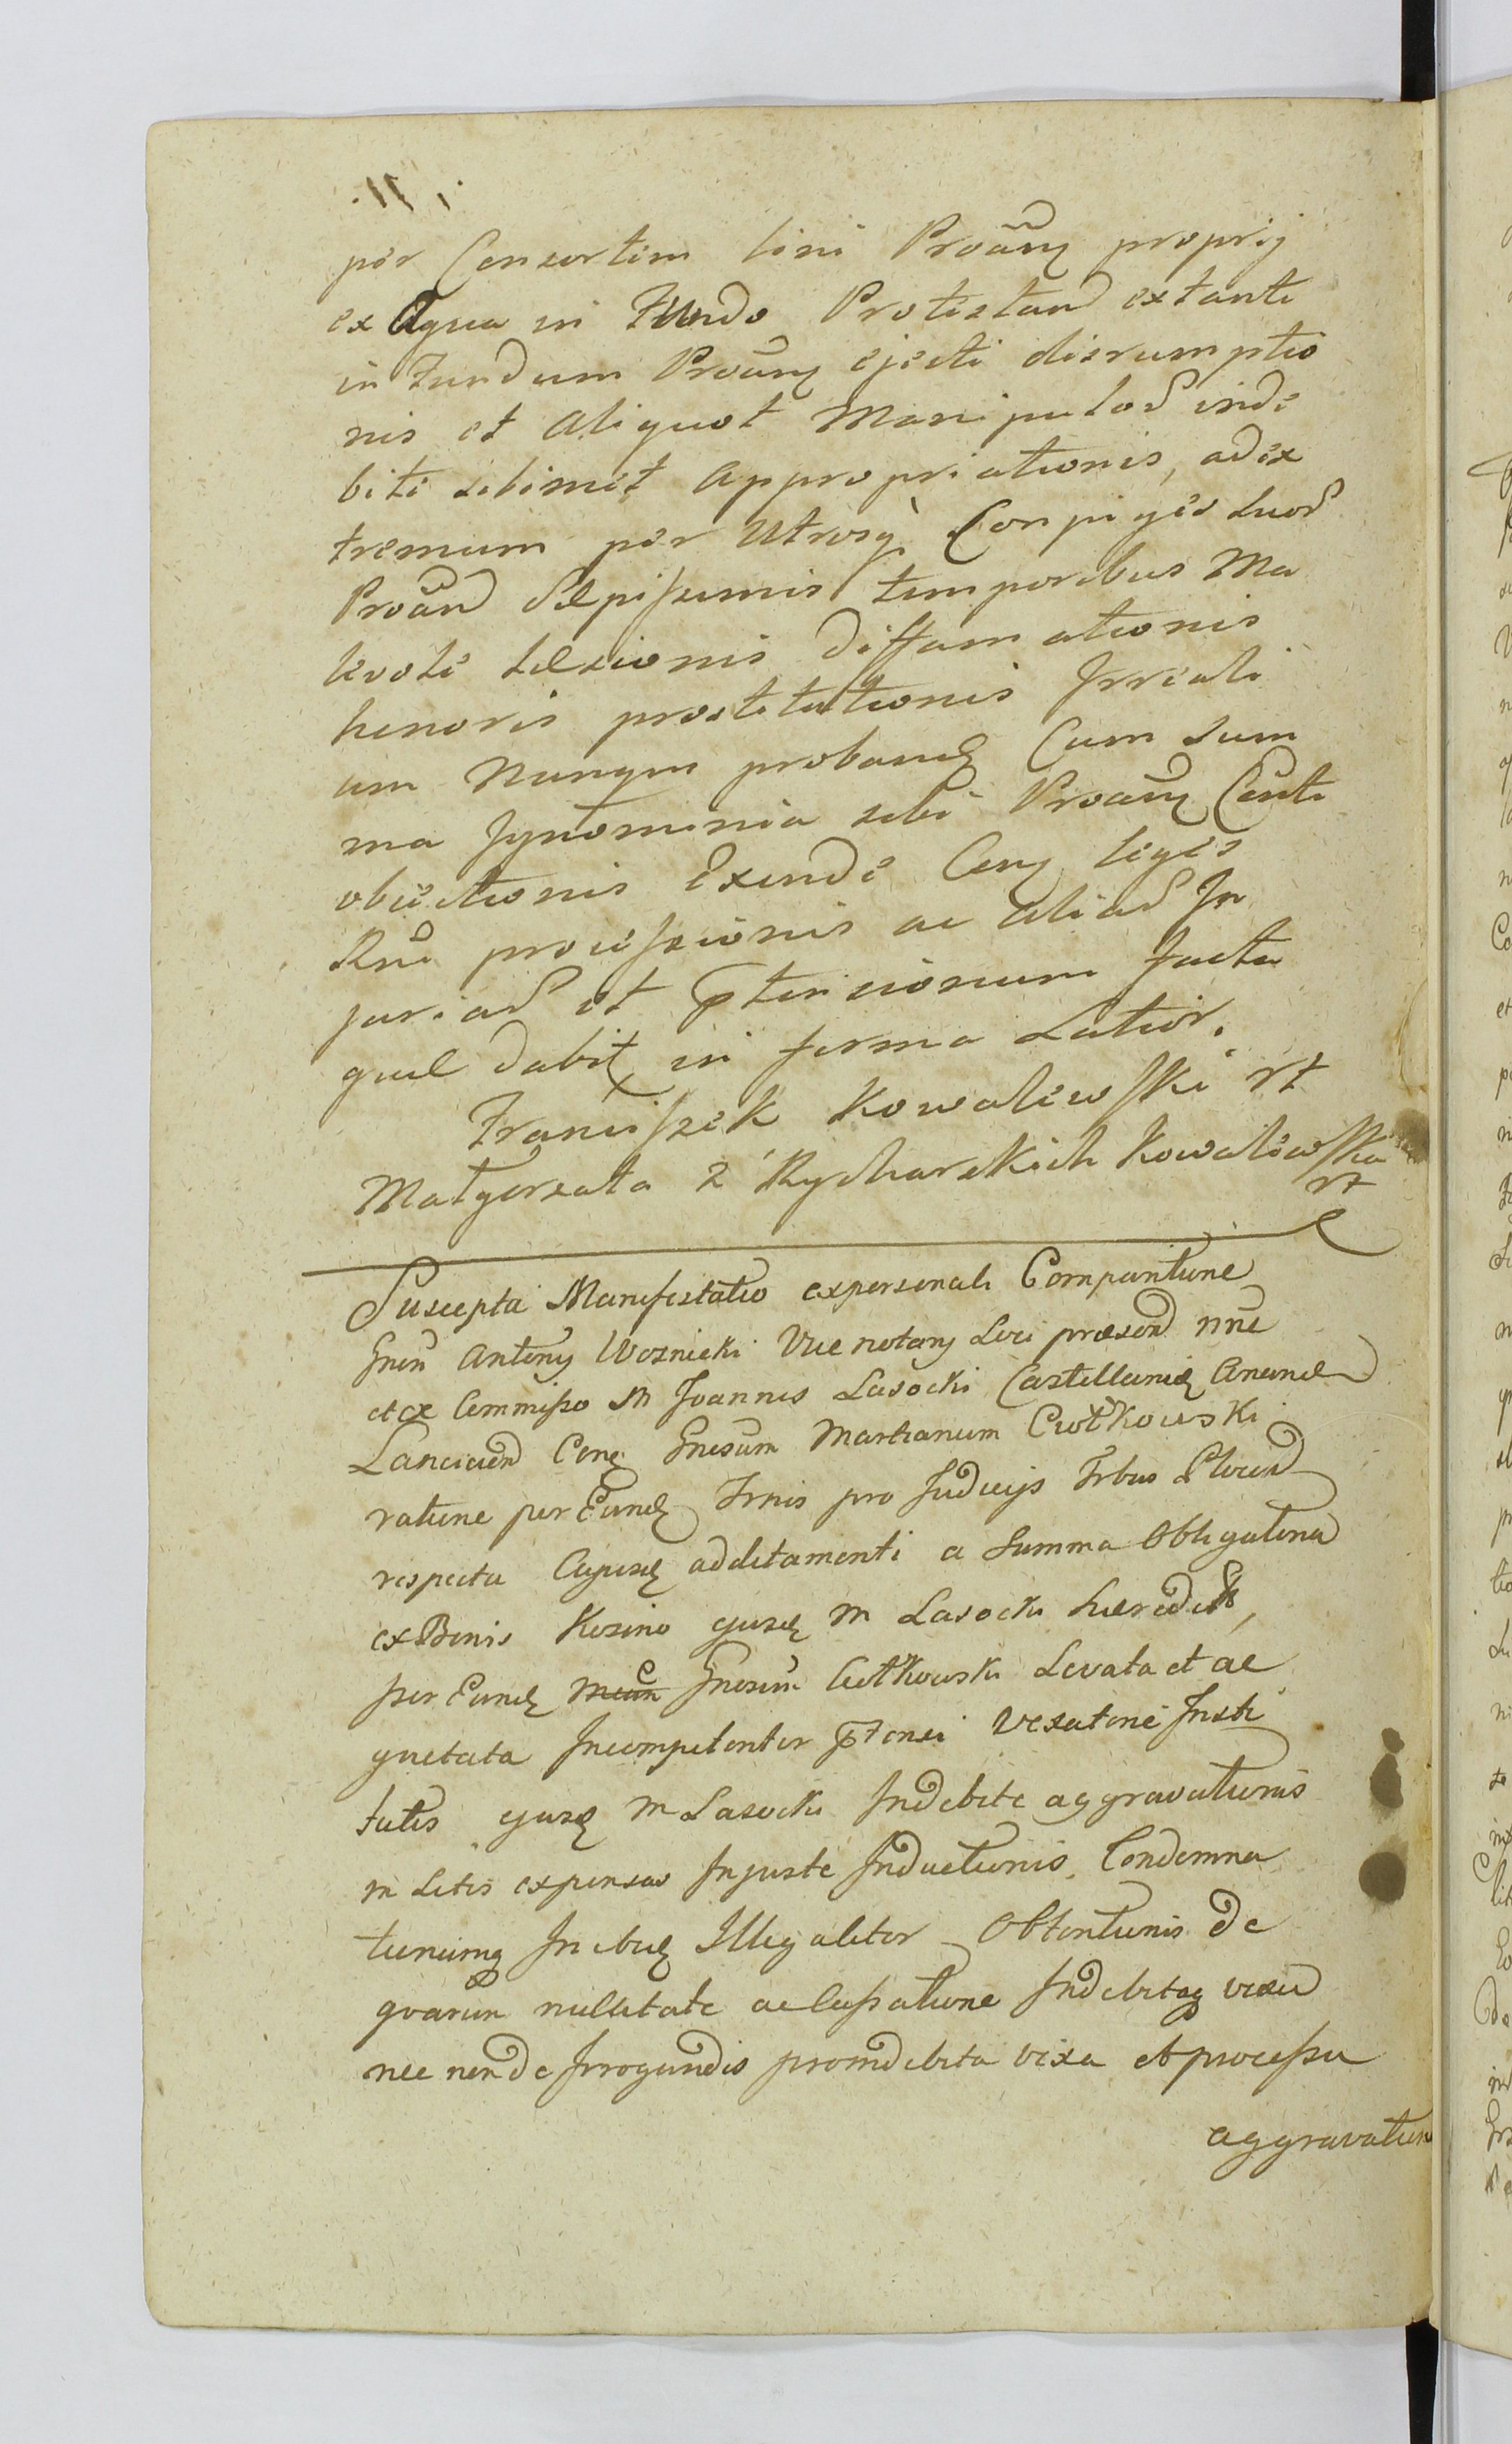 per Consortem lini Proãnt̃ proprij
ex Aqua in Fundo Protestand extanti
in Fundum Proãnt̃ ejecti disrumptio
nis et Aliquot Manipulor̃ inde
bite sibimet appropriationis, ad ex
tremum per Utrosq̀ Conjuges suos
Proãn Sæpissimis temporibus Ma
levole læsionis diffamationis
honoris prostitutionis Irreali
um Nunqm proband Cum Sum
ma Ignominia sibi Proãnt̃ Centi
obiectionis Exinde Cerg legis
Rni processionis ac aliar̃ In
juriar̃ et ptensionum facta
quæ dabit in forma Latior.
Franciszek Kowalewski rt
Małgorzata z Rycharskich Kowalewska
rt
Suscepta Manifestatio ex personali Comparitione
Gnen Antony Woznicki Vice notary Loci præsend nne
et ex Commisso M Joannis Lasocki Castellanid
Lancicien Cerg Gnesum Martianum Ciołkowski
ratione per Eund Trnis pro Judicijs Trbus Plocen
respectu Cujusd additamenti a Summa Obligatoria
ex Bonis Kozino ejusd M Lasocki hæredit,
per Eund Gnosum Ciołkowski Levata et ac
quietata Incompetenter ptensi vexatone Insti
tutis ejusd M Lasocki Indebite aggravationis
in Litis expensas Injuste Inductionis, Condemna
tionumq Illegaliter Obtentionis De
qvarum nullitate ac Cassatione Indebitaq vexa
nec non de Irrogandis pro indebita vexa et processu
aggravation